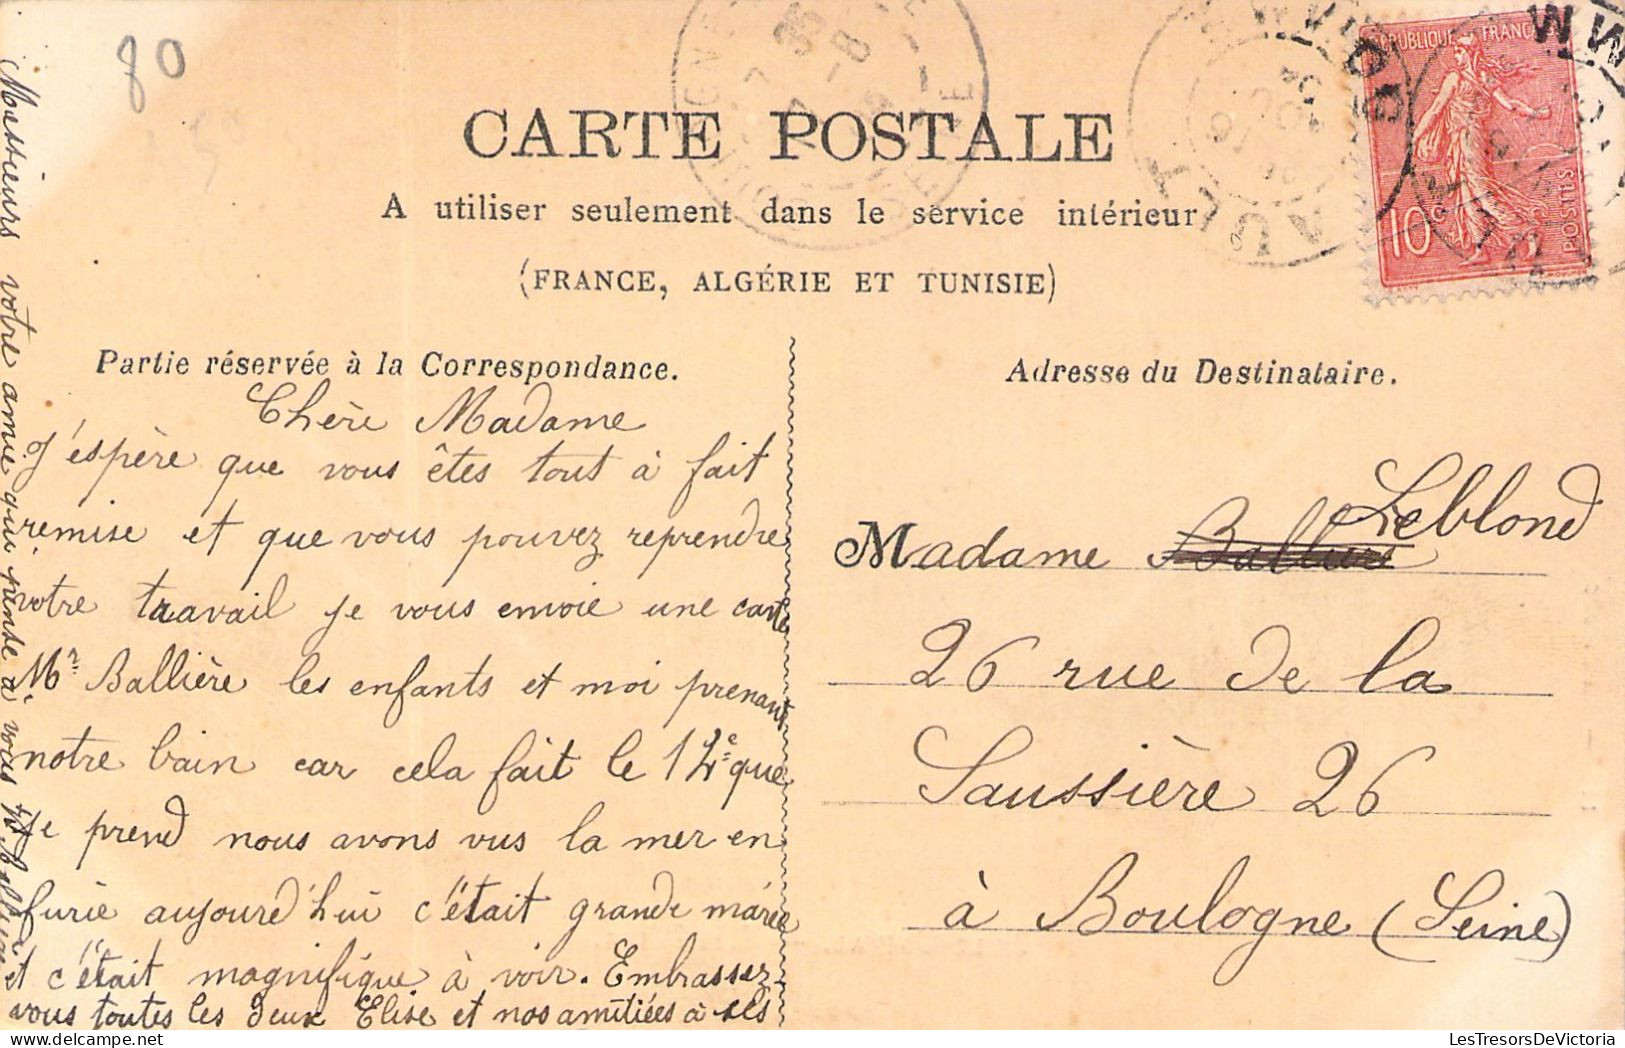 80
CARTE POSTALE
A utiliser seulement dans le service intérieur
(FRANCE, ALGÉRIE ET TUNISIE)
RÉPUBLIQUE FRANC
10c
POSTES
AULT
Partie réservée à la Correspondance.
Adresse du Destinataire.
Chère Madame
J'éspère que vous êtes tout à fait
remise et que vous pouvez reprendre
votre travail je vous envoie une carte
Mr Ballière les enfants et moi prenant
notre bain car cela fait le 12e que
je prend nous avons vus la mer en
furie aujourd'hui c'était grande marée
et c'était magnifique à voir. Embrassez
vous toutes les deux Elise et nos amitiées à ses
Messieurs votre amie qui pense à vous
Madame Leblond
26 rue de la
Saussière 26
à Boulogne (Seine)
LesTresorsDeVictoria